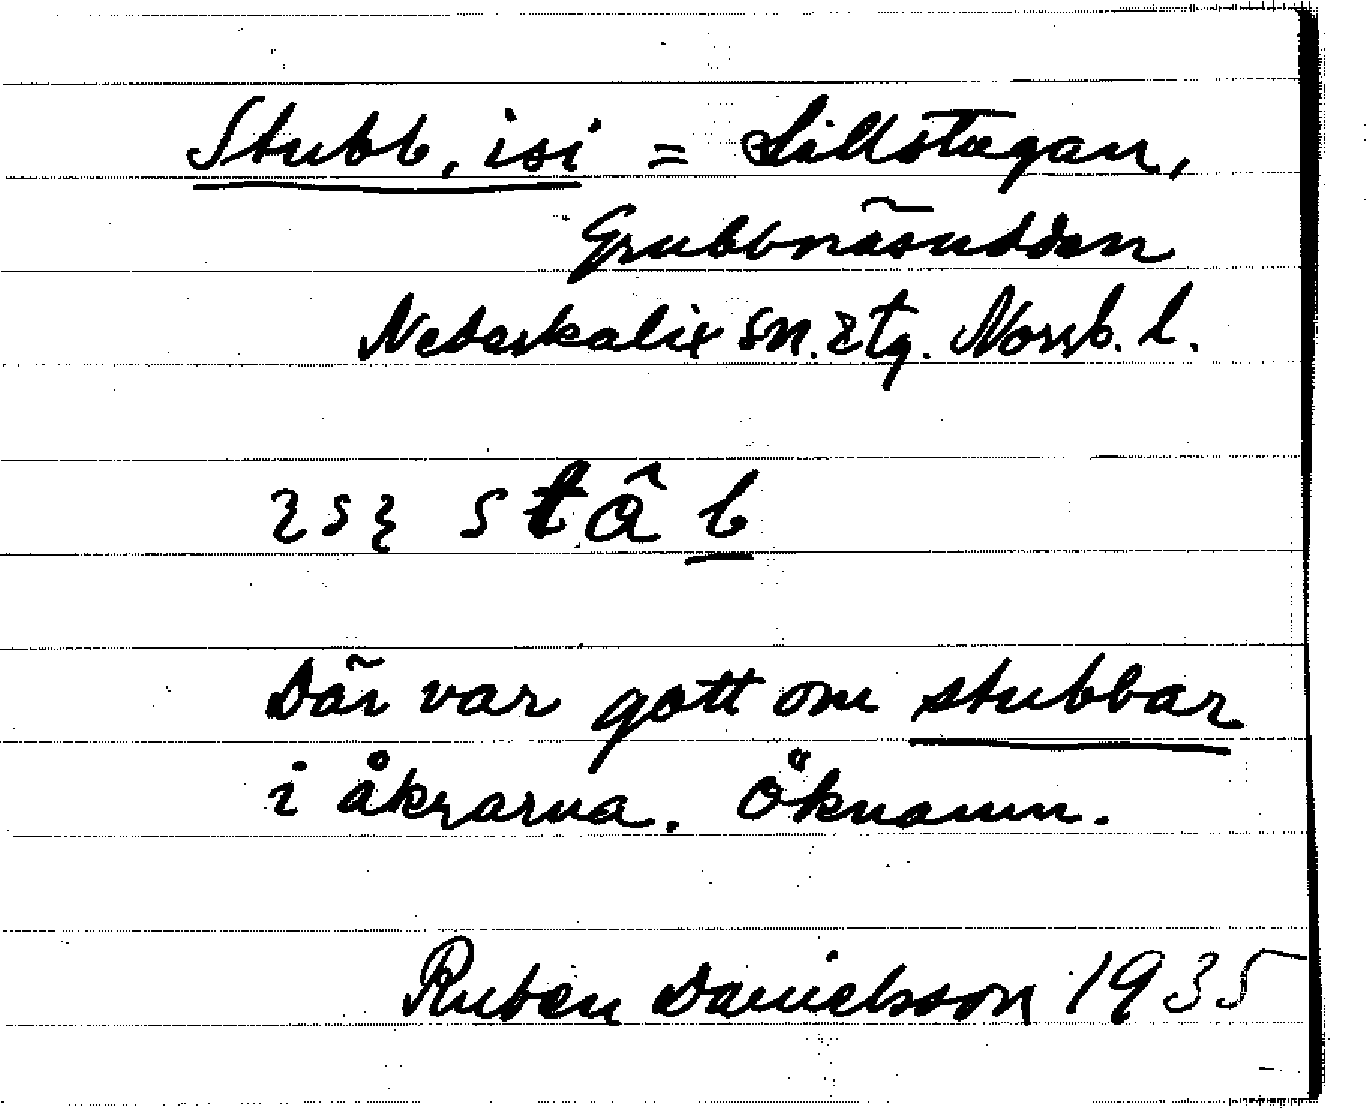 Stubb, isi = Lillstugan,
Grubbnäsudden
Nederkalix sn. o tg. Norrb. l.
stâb
Där var gott om stubbar
i åkrarna. Öknamn.
Ruben Danielsson 1935